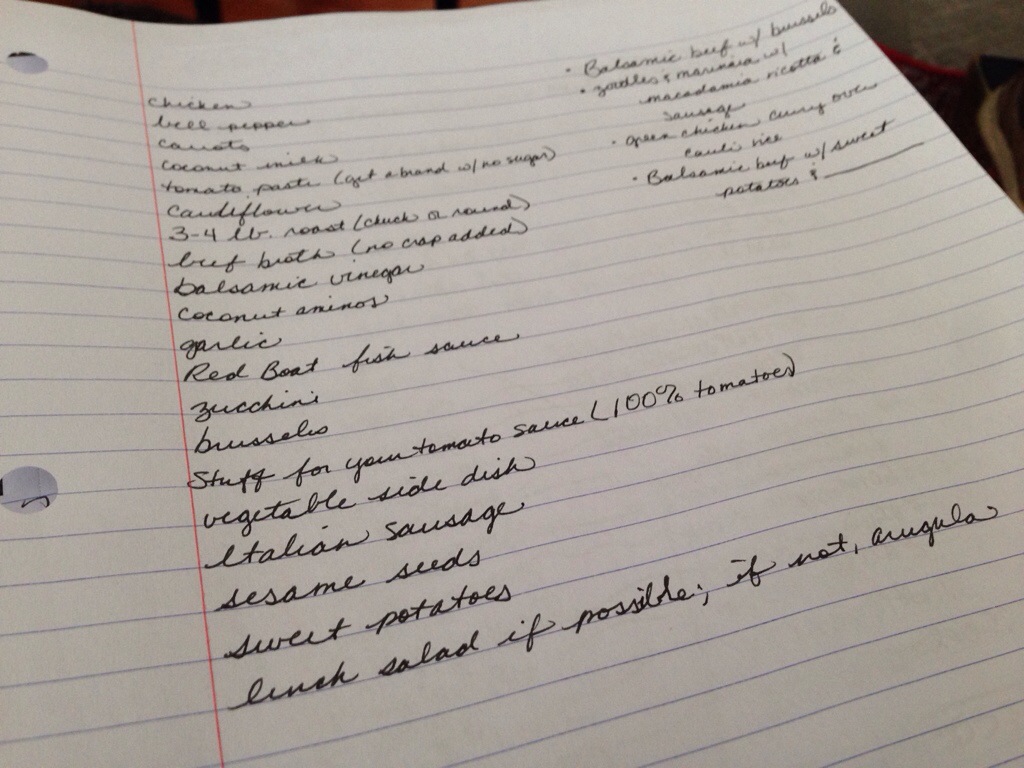 chicken
bell pepper
carrots
coconut milk
tomato paste (get a brand w/ no sugar)
cauliflower
3-4 lb. roast (chuck or round)
beef broth (no crap added)
balsamic vinegar
coconut aminos
garlic
Red Boat fish sauce
zucchini
brussels
Stuff for your tomato sauce (100% tomatoes)
vegetable side dish
Italian sausage
sesame seeds
sweet potatoes
lunch salad if possible; if not, arugula
• Balsamic beef w/ brussels
• zoodles & marinara w/
macadamia ricotta &
sausage
• green chicken curry over
cauli rice
• Balsamic beef w/ sweet
potatoes & ________